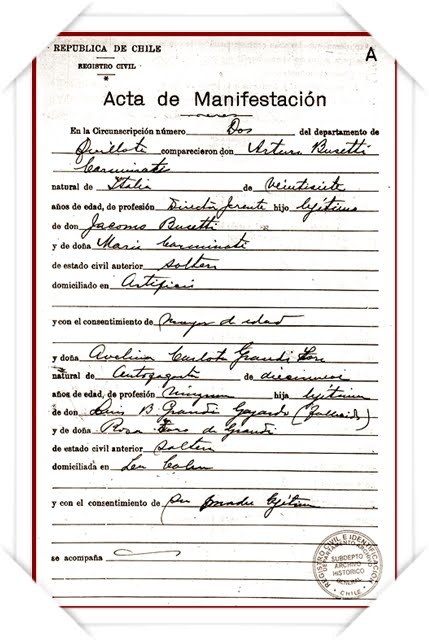 REPUBLICA DE CHILE
REGISTRO CIVIL
A
Acta de Manifestación
En la Circunscripción número Dos del departamento de
Quillota comparecieron don Arturo Busetti
Carminati
natural de Italia de veintisiete
años de edad, de profesión Director Jerente hijo lejítimo
de don Jacomo Busetti
y de doña Maria Carminati
de estado civil anterior soltero
domiciliado en Artificio
y con el consentimiento de mayor de edad
y doña Avelina Carlota Grandi Toro
natural de Antofagasta de diecinueve
años de edad, de profesión ninguna hija lejítima
de don Luis B. Grandi Gajardo (fallecido)
y de doña Rosa Toro de Grandi
de estado civil anterior soltera
domiciliada en La Calera
y con el consentimiento de su madre lejítima
se acompaña
REGISTRO CIVIL E IDENTIFICACION
SUBDEPTO
ARCHIVO
HISTORICO
GENERAL
CHILE